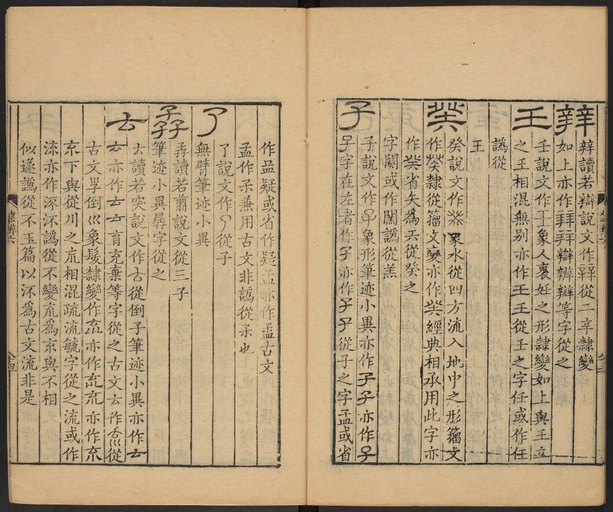 辡 辡讀若辯說文作辡從二辛隸變
如上亦作辡辡辯辨辦等字從之
壬 壬說文作壬象人裹妊之形隸變如上與王立
之王相混無別亦作王王從壬之字任或作任
譌從
王
癸 癸說文作癸象水從四方流入地中之形籀文
作癸隸從籀文變亦作癸經典相承用此字亦
作癸省矢為天從癸之
字闋或作闋譌從羔
子 子說文作子象形筆迹小異亦作子子亦作子
子字在左者作子亦作子子從子之字孟或省
作孟疑或省作疑孟亦作孟古文
孟作㒯㒯用古文非譌從柔也
了 了說文作了從子
無臂筆迹小異
孨 孨讀若翦說文從三子
筆迹小異孱字從之
𠫓 𠫓讀若突說文作𠫓從倒子筆迹小異亦作𠫓
𠫓亦作𠫓𠫓育充棄等字從之古文𠫓作㐬從
古文㜽倒巛象髮隸變作㐬亦作㐬㐬亦作㐬
㐬下與從川之㡃相混疏流毓字從之流或作
㳅亦作深沠譌從不變㐬為㐬與不相
似遂譌從不玉篇以沠為古文流非是